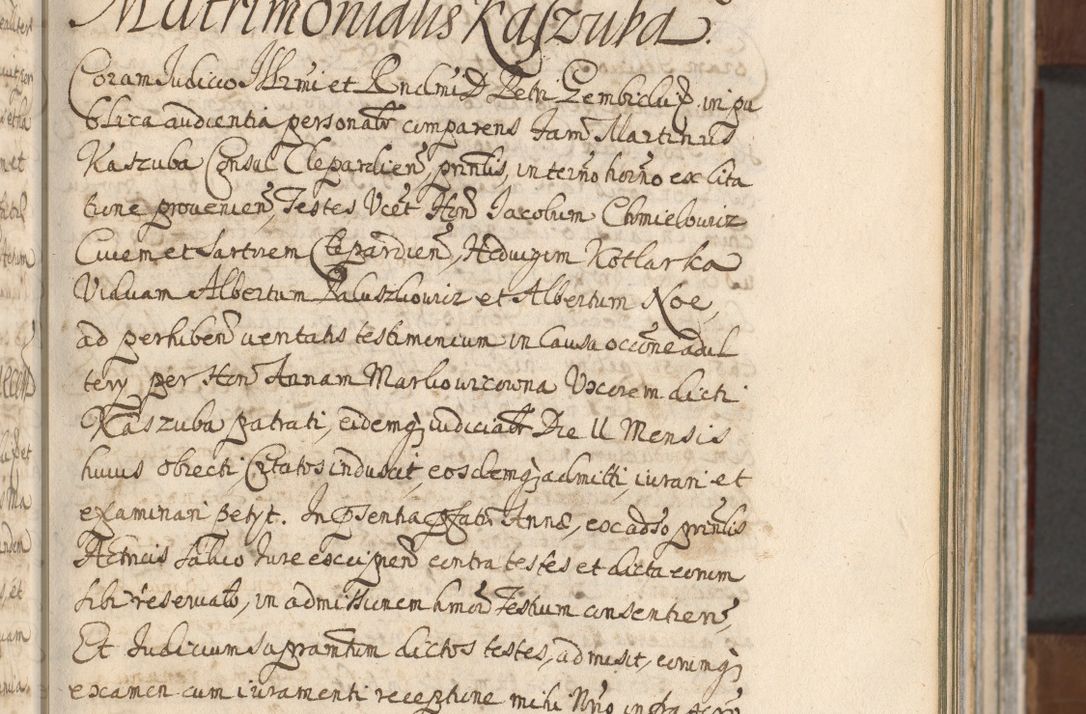 Matrimonialis Kaszuba.
Coram Iudicio Illrmi et Rndmi D Petri Gembicki Ep, in pu
blica audientia personalr comparens Fam Martinus
Kaszuba Consul Clepardien, prinlis, in termo horno ex cita
tione provenien, Testes Vcet Hon Iacobum Chmielowic
Civem et Sartorem Clepardien, Hedvigim Kotlarka
Viduam Albertum Paluszkowic et Albertum Noe,
ad perhiben veritatis testimonium in Causa occone adul
tery per Hon Annam Markowicowna Uxorem dicti
Kaszuba patrati, eidemq iudicialr Die 11 Mensis
huius obiecti, Citatos induxit, eosdemq admitti, iurari et
examinari petyt. In psentia pfatæ Annæ, ex adso prinlis
Actricis salvo Iure excipien contra testes et dicta eorum
sibi reservato, in admissionem hmoi Testium consentien,
Et Iudicium supranotum dictos testes, admisit, eorumq
examen cum iuramenti receptione mihi Nrio infra Actor